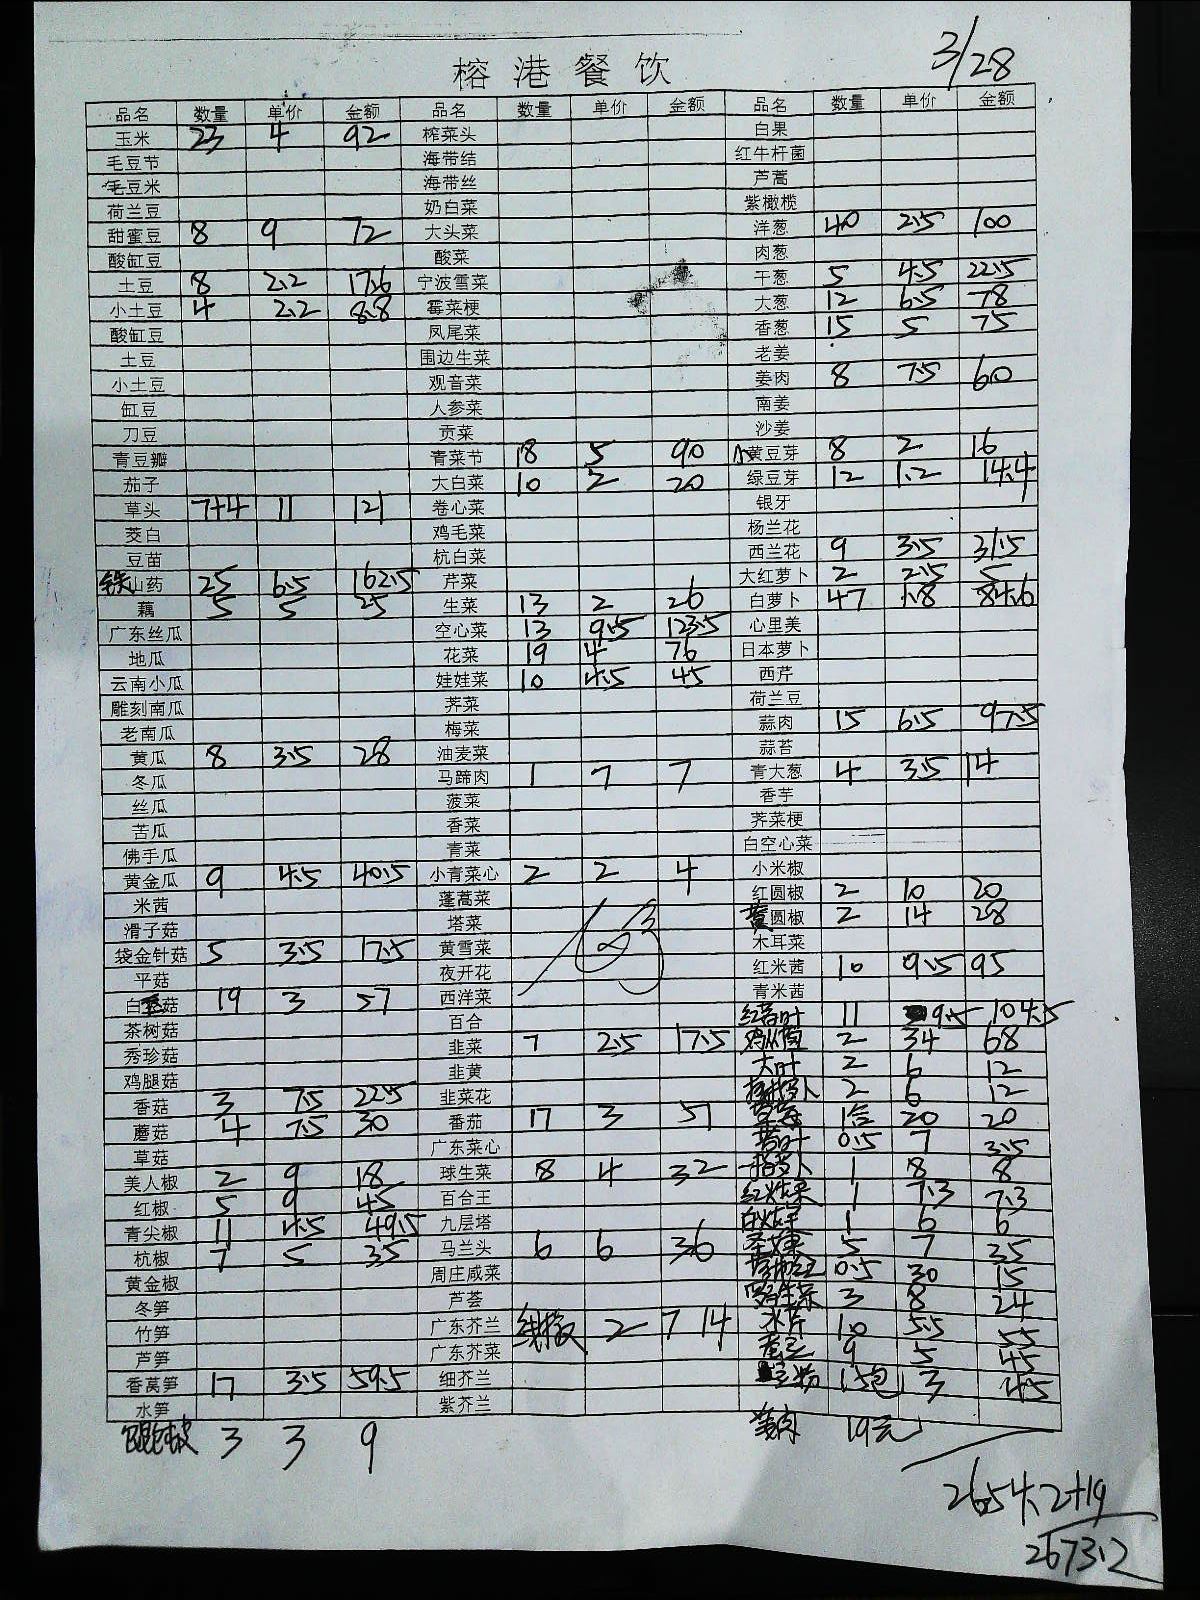 榕港餐饮 3/28
品名 数量 单价 金额 品名 数量 单价 金额 品名 数量 单价 金额
玉米 23 4 92 榨菜头 白果
毛豆节 海带结 红牛杆菌
毛豆米 海带丝 芦蒿
荷兰豆 奶白菜 紫橄榄
甜蜜豆 8 9 72 大头菜 洋葱 40 2.5 100
酸缸豆 酸菜 肉葱
土豆 8 2.2 17.6 宁波雪菜 干葱 5 4.5 22.5
小土豆 4 2.2 8.8 霉菜梗 大葱 12 6.5 78
酸缸豆 凤尾菜 香葱 15 5 75
土豆 围边生菜 老姜
小土豆 观音菜 姜肉 8 7.5 60
缸豆 人参菜 南姜
刀豆 贡菜 沙姜
青豆瓣 青菜节 18 5 90 小黄豆芽 8 2 16
茄子 大白菜 10 2 20 绿豆芽 12 1.2 14.4
草头 7+4 11 121 卷心菜 银牙
茭白 鸡毛菜 杨兰花
豆苗 杭白菜 西兰花 9 3.5 31.5
铁山药 25 6.5 162.5 芹菜 大红萝卜 2 2.5 5
藕 5 5 25 生菜 13 2 26 白萝卜 47 1.8 84.6
广东丝瓜 空心菜 13 9.5 123.5 心里美
地瓜 花菜 19 4 76 日本萝卜
云南小瓜 娃娃菜 10 4.5 45 西芹
雕刻南瓜 荠菜 荷兰豆
老南瓜 梅菜 蒜肉 15 6.5 97.5
黄瓜 8 3.5 28 油麦菜 蒜苔
冬瓜 马蹄肉 1 7 7 青大葱 4 3.5 14
丝瓜 菠菜 香芋
苦瓜 香菜 荠菜梗
佛手瓜 青菜 白空心菜
黄金瓜 9 4.5 40.5 小青菜心 2 2 4 小米椒
米茜 蓬蒿菜 红圆椒 2 10 20
滑子菇 塔菜 黄圆椒 2 14 28
袋金针菇 5 3.5 17.5 黄雪菜 木耳菜
平菇 夜开花 红米茜 10 9.5 95
白玉菇 19 3 57 西洋菜 青米茜
茶树菇 百合 11 9.5 104.5
秀珍菇 韭菜 7 2.5 17.5 2 34 68
鸡腿菇 韭黄 大叶 2 6 12
香菇 3 7.5 22.5 韭菜花 2 6 12
蘑菇 4 7.5 30 番茄 17 3 51 1合 20 20
草菇 广东菜心 0.5 7 3.5
美人椒 2 9 18 球生菜 8 4 32 1 8 8
红椒 5 9 45 百合王 1 7.3 7.3
青尖椒 11 4.5 49.5 九层塔 1 6 6
杭椒 7 5 35 马兰头 6 6 36 5 7 35
黄金椒 周庄咸菜 0.5 30 15
冬笋 芦荟 3 8 24
竹笋 广东芥兰 线椒 2 7 14 水芹 10 5.5 55
芦笋 广东芥菜 9 5 45
香莴笋 17 3.5 59.5 细芥兰 15包 3 45
水笋 紫芥兰
馄饨皮 3 3 9 19元
2654.2+19
2673.2